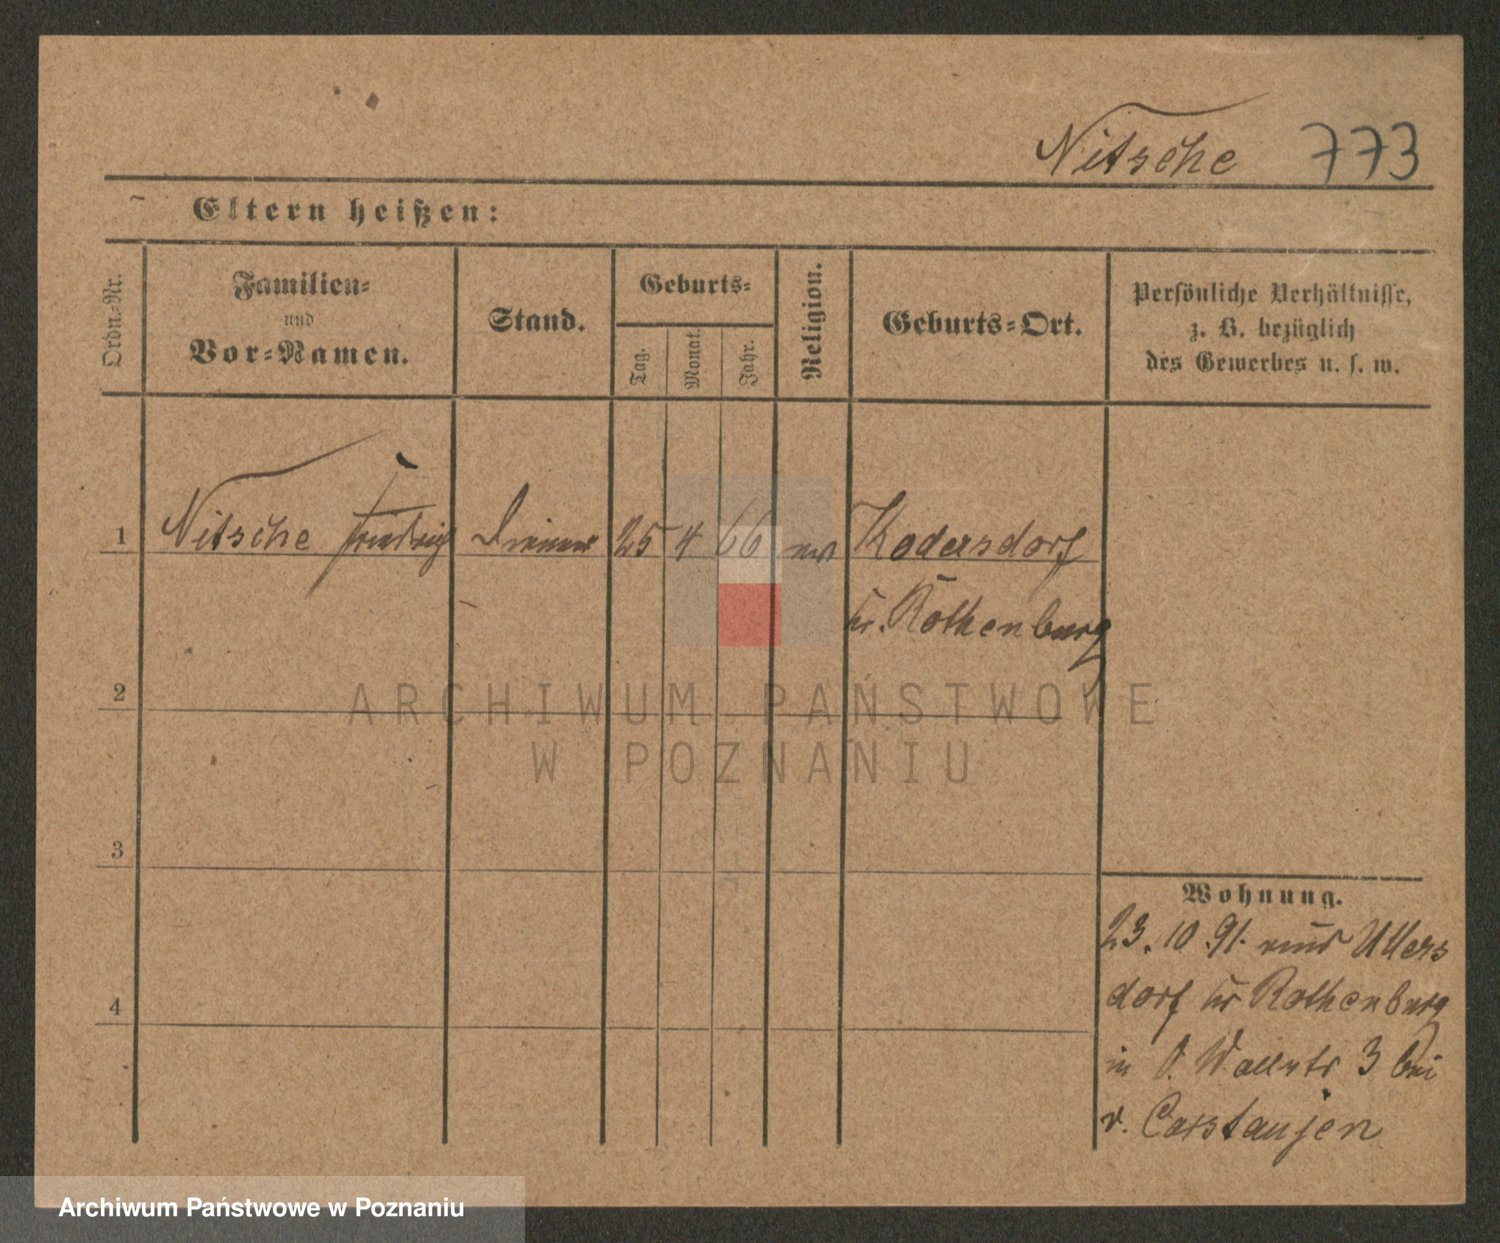 Nitsche 773
Eltern heißen:
Ordn.-Nr.
Familien-
und
Vor-Namen.
Stand.
Geburts-
Tag.
Monat.
Jahr.
Religion.
Geburts-Ort.
Persönliche Verhältnisse,
z. B. bezüglich
des Gewerbes u. s. w.
1 Nitsche Friedrich Diener 25 4 66 ev Kodersdorf
Kr. Rothenburg
2
ARCHIWUM PAŃSTWOWE
W POZNANIU
3
Wohnung.
23. 10 91. aus Ullers
dorf Kr Rothenburg
4
in O. Wallstr 3 bei
v. Carstanjen
Archiwum Państwowe w Poznaniu